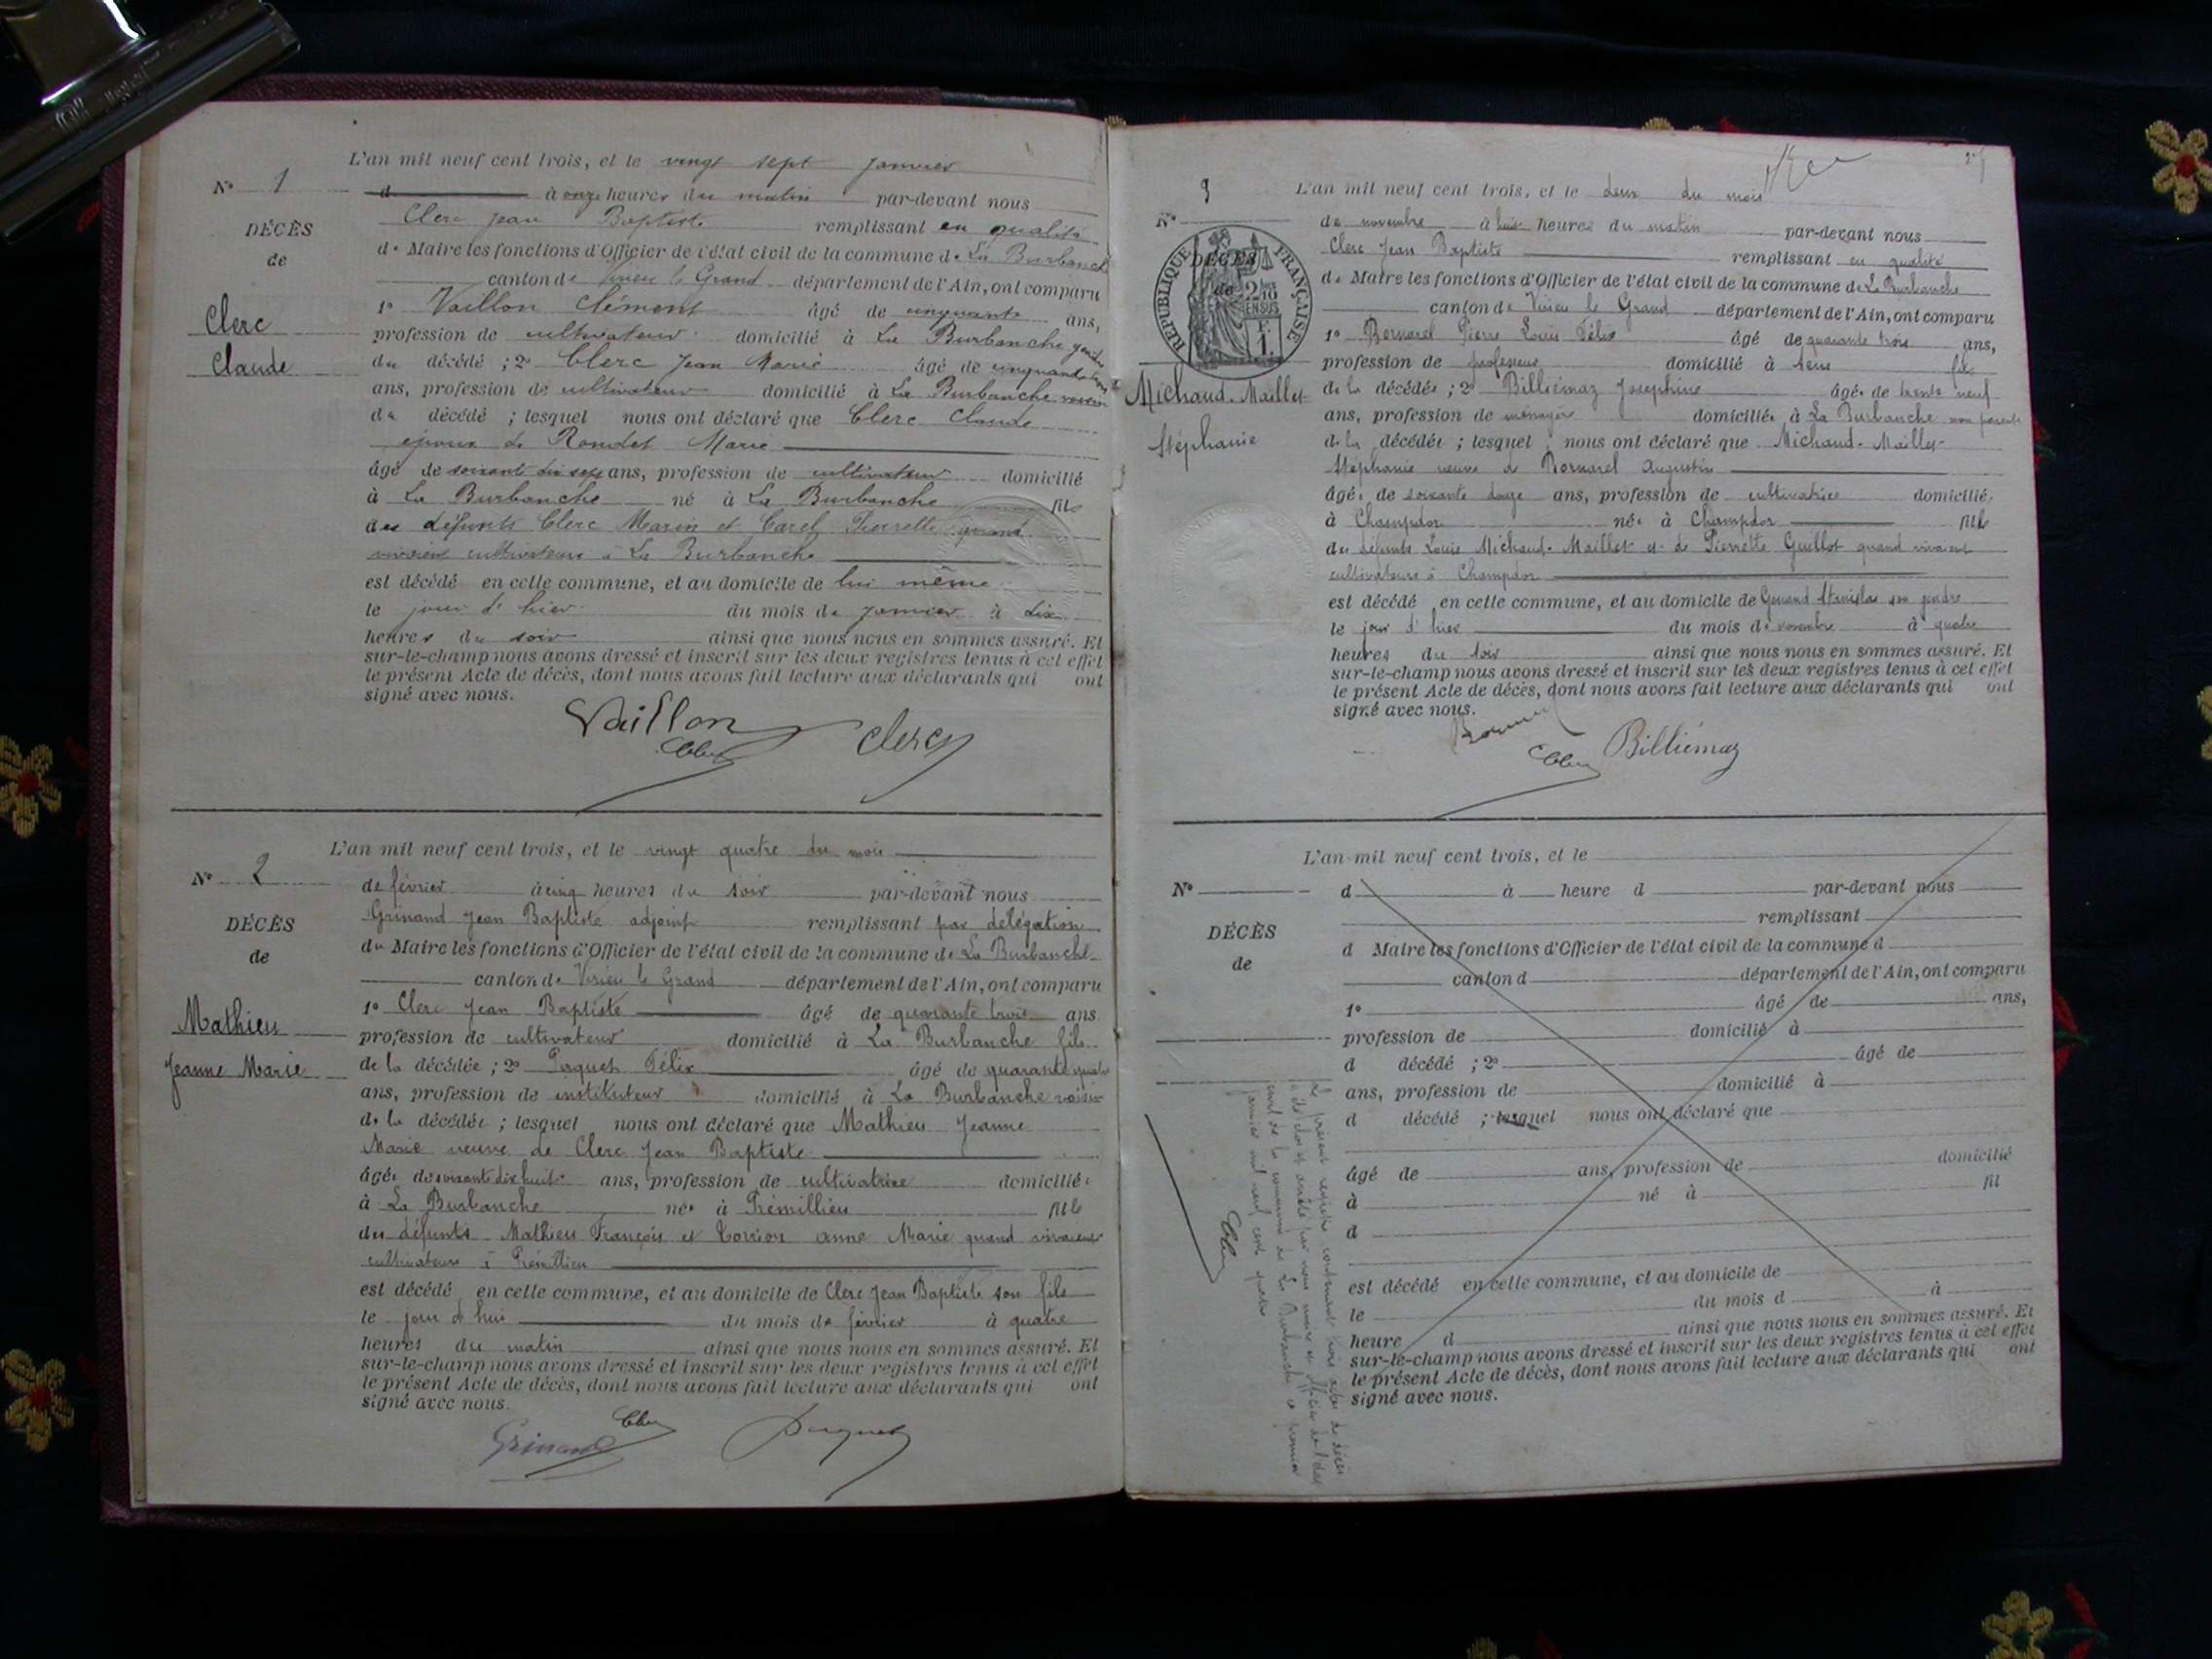 L'an mil neuf cent trois, et le vingt sept janvier
N° 1
d à onze heures du matin par-devant nous
DÉCÈS
de
Clerc
Claude
Clerc Jean Baptiste remplissant en qualité
de Maire les fonctions d'Officier de l'état civil de la commune de La Burbanche
canton de Virieu le Grand département de l'Ain, ont comparu
1° Vaillon Clément âgé de cinquante ans,
profession de cultivateur domicilié à La Burbanche gendre
du décédé ; 2° Clerc Jean Marie âgé de cinquante
ans, profession de cultivateur domicilié à La Burbanche voisin
du décédé ; lesquel nous ont déclaré que Clerc Claude
époux de Rondet Marie
âgé de soixante dix sept ans, profession de cultivateur domicilié
à La Burbanche né à La Burbanche fils
des défunts Clerc Marin et Carel Pierrette quand
vivaient cultivateurs à La Burbanche
est décédé en cette commune, et au domicile de lui même
le jour d'hier du mois de janvier à dix
heures du soir ainsi que nous nous en sommes assuré. Et
sur-le-champ nous avons dressé et inscrit sur les deux registres tenus à cet effet
le présent Acte de décès, dont nous avons fait lecture aux déclarants qui ont
signé avec nous.
Vaillon Clerc
Clerc
L'an mil neuf cent trois, et le vingt quatre du mois
N° 2
DÉCÈS
de
Mathieu
Jeanne Marie
de février à cinq heures du soir par-devant nous
Grinand Jean Baptiste adjoint remplissant par délégation
du Maire les fonctions d'Officier de l'état civil de la commune de La Burbanche
canton de Virieu le Grand département de l'Ain, ont comparu
1° Clerc Jean Baptiste âgé de quarante trois ans
profession de cultivateur domicilié à La Burbanche fils
de la décédée ; 2° Paquet Félix âgé de quarante quatre
ans, profession de instituteur domicilié à La Burbanche voisin
de la décédée ; lesquel nous ont déclaré que Mathieu Jeanne
Marie veuve de Clerc Jean Baptiste
âgée de soixante dix huit ans, profession de cultivatrice domiciliée
à La Burbanche née à Prémillieu fille
des défunts Mathieu François et Anne Marie quand vivaient
cultivateurs à Prémillieu
est décédé en cette commune, et au domicile de Clerc Jean Baptiste son fils
le jour d'hui du mois de février à quatre
heures du matin ainsi que nous nous en sommes assuré. Et
sur-le-champ nous avons dressé et inscrit sur les deux registres tenus à cet effet
le présent Acte de décès, dont nous avons fait lecture aux déclarants qui ont
signé avec nous.
Grinand Clerc Paquet
L'an mil neuf cent trois, et le deux du mois
N° 3
DÉCÈS
de
RÉPUBLIQUE FRANÇAISE
Michaud-Maillet
Stéphanie
de novembre à huit heures du matin par-devant nous
Clerc Jean Baptiste remplissant en qualité
de Maire les fonctions d'Officier de l'état civil de la commune de La Burbanche
canton de Virieu le Grand département de l'Ain, ont comparu
1° Bornarel Pierre Louis Félix âgé de quarante trois ans,
profession de professeur domicilié à fils
de la décédée ; 2° Billiémaz Joséphine âgée de trente neuf
ans, profession de ménagère domiciliée à La Burbanche non parente
de la décédée ; lesquel nous ont déclaré que Michaud-Maillet
Stéphanie veuve de Bornarel Augustin
âgée de soixante douze ans, profession de cultivatrice domiciliée
à Champdor née à Champdor fille
des défunts Louis Michaud-Maillet et de Pierrette Guillot quand vivaient
cultivateurs à Champdor
est décédé en cette commune, et au domicile de Stanislas son gendre
le jour d'hier du mois de novembre à quatre
heures du soir ainsi que nous nous en sommes assuré. Et
sur-le-champ nous avons dressé et inscrit sur les deux registres tenus à cet effet
le présent Acte de décès, dont nous avons fait lecture aux déclarants qui ont
signé avec nous.
Clerc Billiémaz
L'an mil neuf cent trois, et le
N°
DÉCÈS
de
d à heure d par-devant nous
remplissant
d Maire les fonctions d'Officier de l'état civil de la commune d
canton d département de l'Ain, ont comparu
1° âgé de ans,
profession de domicilié à
d décédé ; 2° âgé de
ans, profession de domicilié à
d décédé ; lesquel nous ont déclaré que
âgé de ans, profession de domicilié
à né à fil
d
est décédé en cette commune, et au domicile de
le du mois d à
heure d ainsi que nous nous en sommes assuré. Et
sur-le-champ nous avons dressé et inscrit sur les deux registres tenus à cet effet
le présent Acte de décès, dont nous avons fait lecture aux déclarants qui ont
signé avec nous.
Le présent registre contenant trois actes de décès
a été clos et arrêté par nous maire et officier de l'état
civil de la commune de La Burbanche le premier
janvier mil neuf cent quatre
Clerc